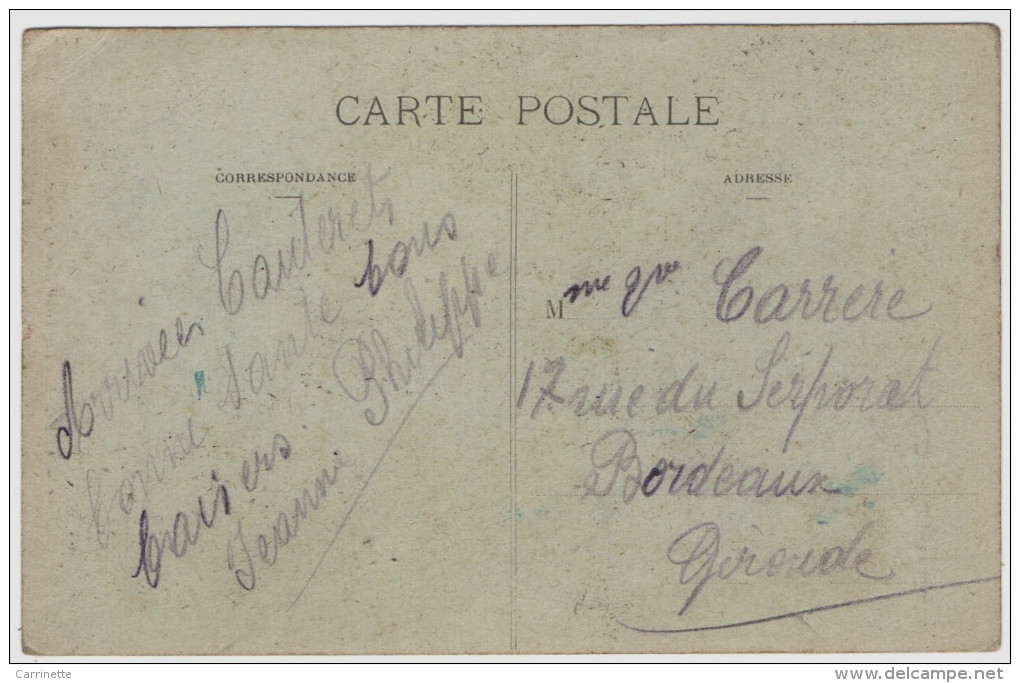 CARTE POSTALE
CORRESPONDANCE
ADRESSE
Arrivées Cauterets
bonne santé bons
baisers
Jeanne Philippe
Mme Vve Carrere
17 rue du Serporat
Bordeaux
Gironde
Carrinette
www.delcampe.net